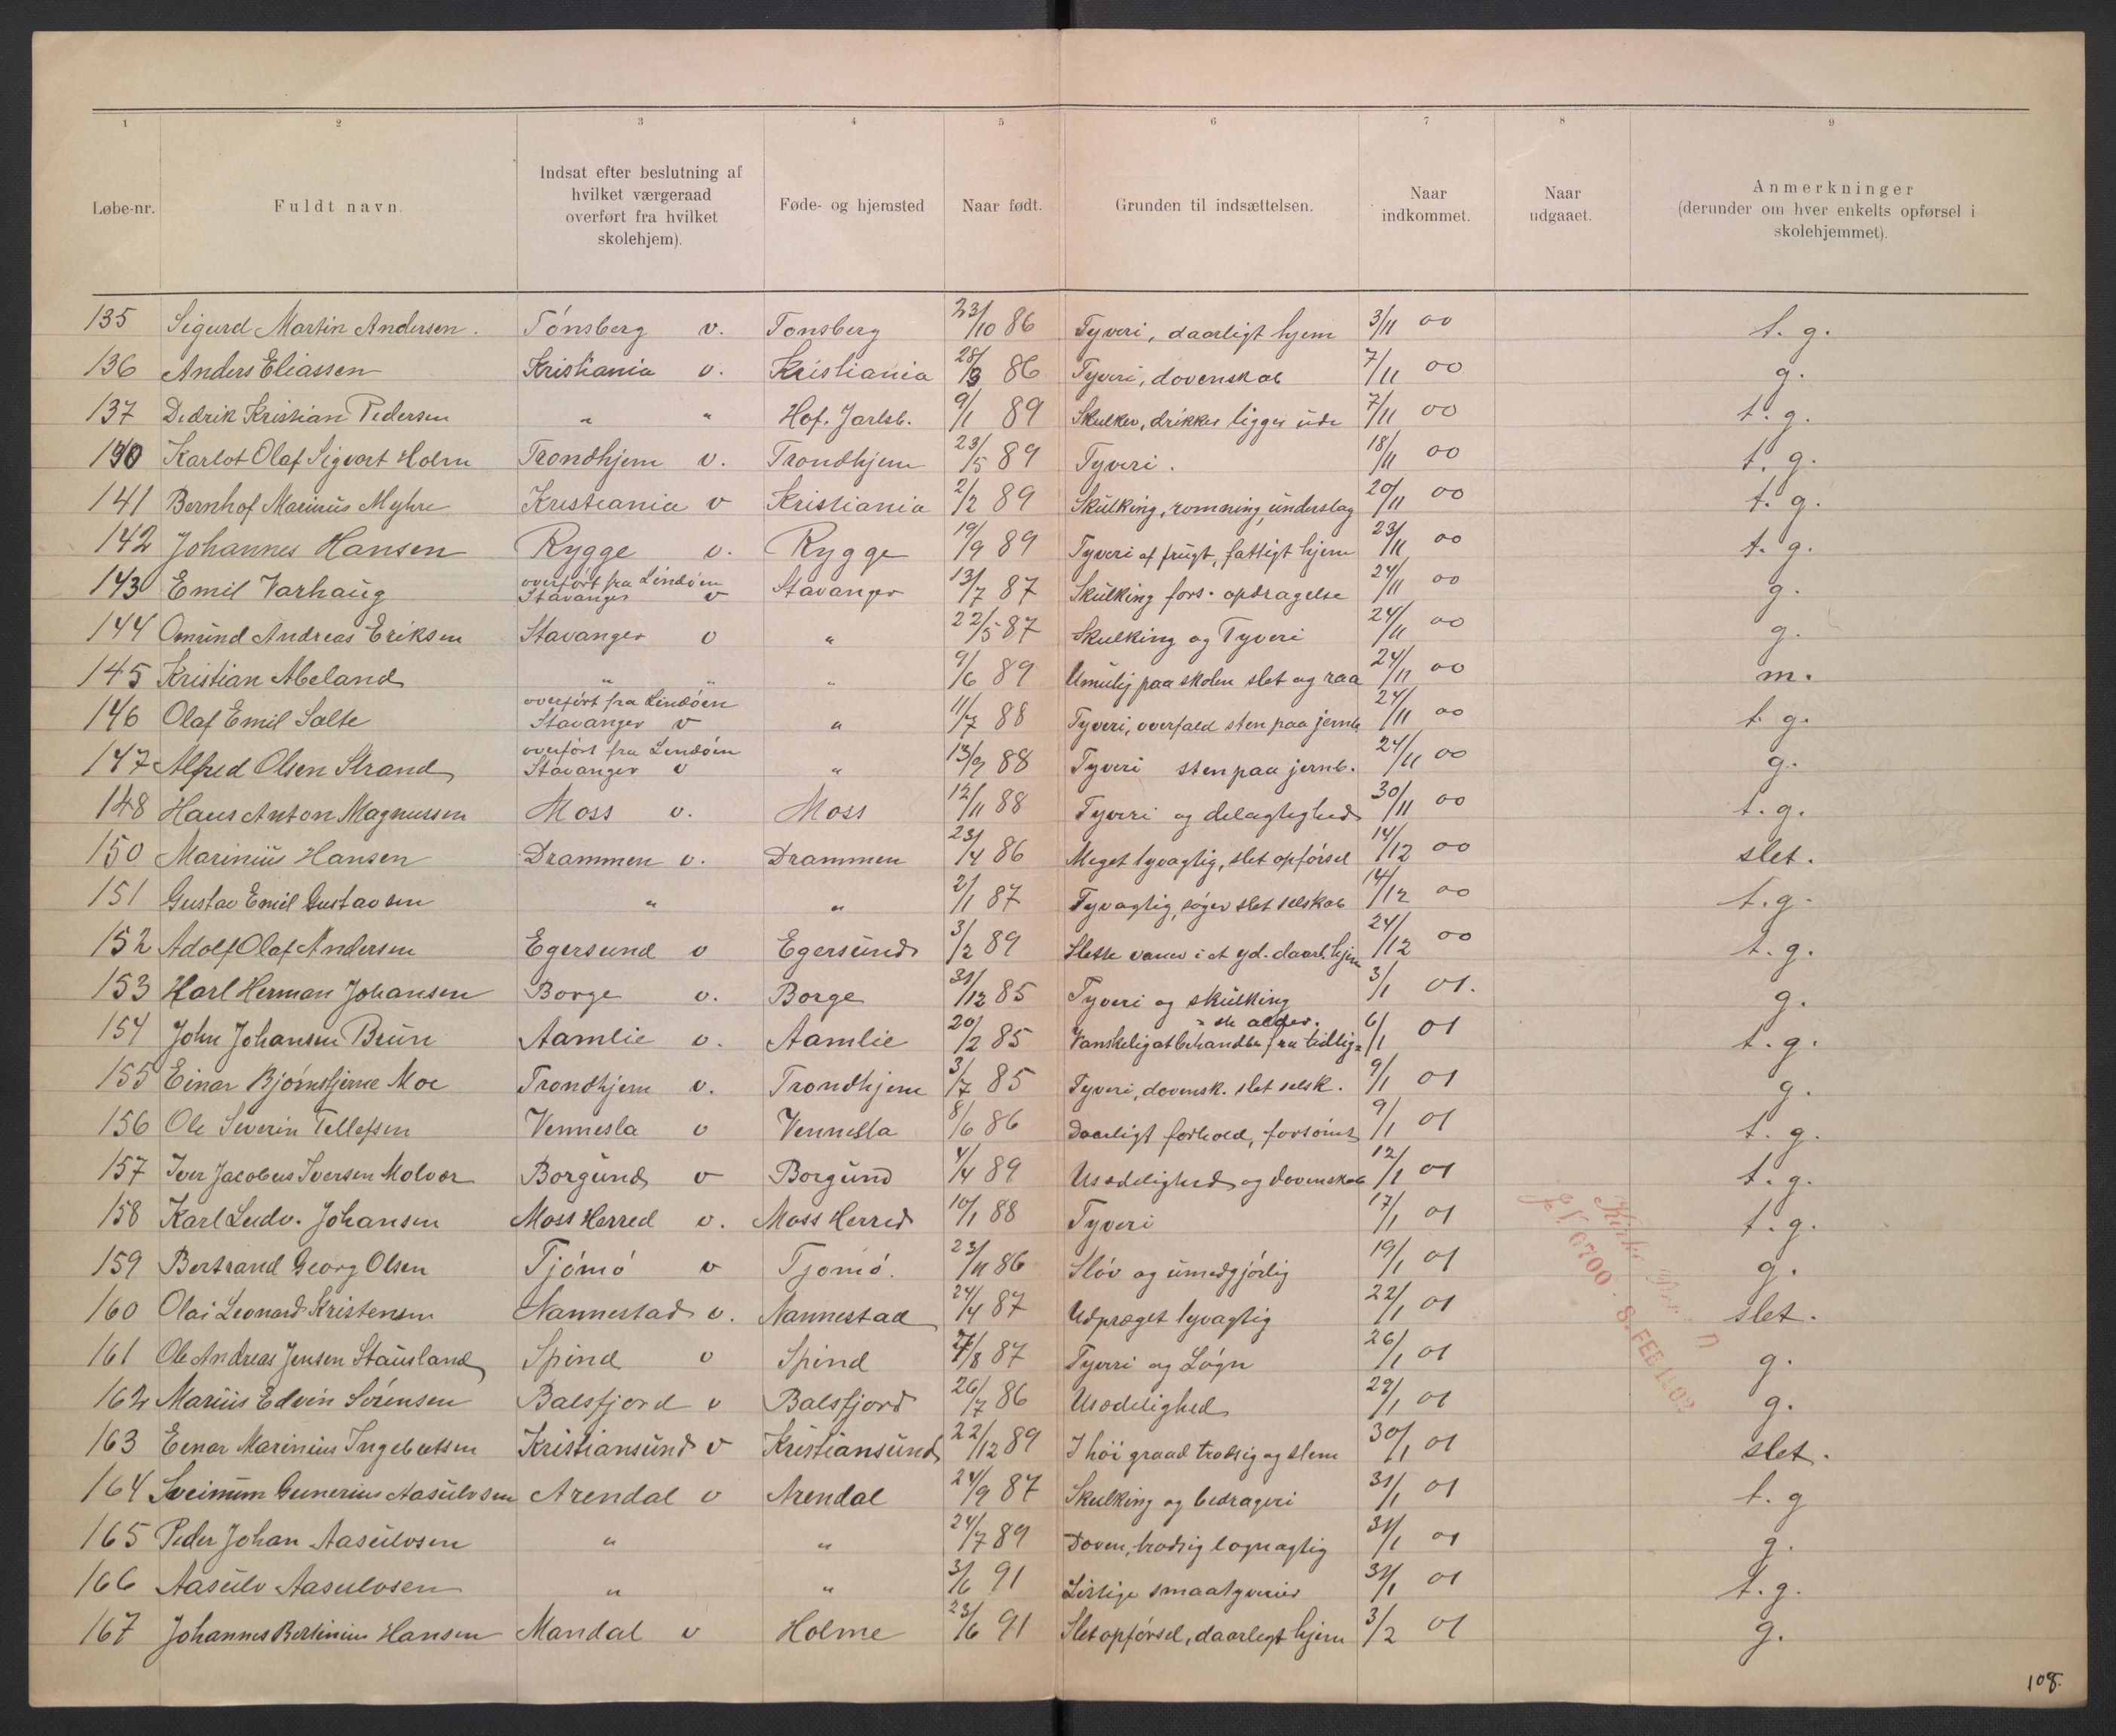 1 2 3 4 5 6 7 8 9
Løbe-nr. Fuldt navn. Indsat efter beslutning af hvilket værgeraad overført fra hvilket skolehjem). Føde- og hjemsted Naar født. Grunden til indsættelsen. Naar indkommet. Naar udgaaet. Anmerkninger (derunder om hver enkelts opførsel i skolehjemmet).
135 Sigurd Martin Andersen. Tónsberg v. Tonsberg 23/10 86 Tyveri, daarligt hjem 3/11 00 t. g.
136 Anders Eliassen Kristiania v. Kristiania 28/3 86 Tyveri, dovenskab 7/11 00 g.
137 Didrik Kristian Pedersen " " Hof. Jarlsb. 9/1 89 Skulker, drikker ligger ude 7/11 00 t. g.
Karlot Olaf Sigvart Holm Trondhjem v. Trondhjem 23/5 89 Tyveri. 18/11 00 t. g.
141 Bernhof Marinus Myhre Kristiania v Kristiania 2/2 89 Skulking, romning, underslag 20/11 00 t. g.
142 Johannes Hansen Rygge v. Rygge 19/9 89 Tyveri af frugt, fattigt hjem 23/11 00 t. g.
143 Emil Varhaug overført fra Lindóen Stavanger v Stavanger 13/7 87 Skulking fors. opdragelse 24/11 00 g.
144 Omund Andreas Eriksen Stavanger v " 22/5 87 Skulking og Tyveri 24/11 00 g.
145 Kristian Abeland " " " 9/6 89 Umulig paa skolen slet og raa 24/11 00 m.
146 Olaf Emil Salte overført fra Lindóen Stavanger v " 11/7 88 Tyveri, overfald sten paa jernb 24/11 00 t. g.
147 Alfred Olsen Strand overført fra Lindóen Stavanger v " 13/9 88 Tyveri sten paa jernb. 24/11 00 g.
148 Hans Anton Magnussen Moss v. Moss 12/11 88 Tyveri og delagtighed 30/11 00 t. g.
150 Marinius Hansen Drammen v. Drammen 23/4 86 Meget tyvagtig, slet opførsel 14/12 00 slet.
151 Gustav Emil Gustavsen " " 2/1 87 Tyvagtig, søger slet selskab 14/12 00 t. g.
152 Adolf Olaf Andersen Egersund v Egersund 3/2 89 Slette vaner i et yd. daarl. hjem 24/12 00 t. g.
153 Karl Herman Johansen Borge v. Borge 31/12 85 Tyveri og skulking 3/1 01. g.
154 John Johansen Brun Aamlie v. Aamlie 20/2 85 Vanskelig at behandle fra tidlig= =ste alder. 6/1 01 t. g.
155 Einar Bjørnstjerne Moe Trondhjem v. Trondhjem 3/7 85 Tyveri, dovensk. slet selsk. 9/1 01 g.
156 Ole Severin Tellefsen Vennesla v Vennesla 8/6 86 Daarligt forhold, forsømt 9/1 01 t. g.
157 Iver Jacobus Iversen Molvær Borgund v Borgund 4/4 89 Usædelighed og dovenskab 12/1 01 t. g.
158 Karl Ludv. Johansen Moss Herred v. Moss Herred 10/1 88 Tyveri 17/1 01 t. g.
159 Bertrand Georg Olsen Tjómó v Tjomó. 23/11 86 Sløv og umedgjørlig 19/1 01 g.
160 Olai Leonard Kristensen Nannestad v. Nannestad 24/4 87 Udpræget tyvagtig 22/1 01 slet.
161 Ole Andreas Jensen Stausland Spind v Spind 7/8 87 Tyveri og Løgn 26/1 01 g.
162 Marius Edvin Sørensen Balsfjord v Balsfjord 26/7 86 Usædelighed 29/1 01 g.
163 Einar Marinius Ingebretsen Kristiansund v Kristiansund 22/12 89 I høi graad trodsig og slem 30/1 01 slet.
164 Sveinum Gunerius Aasulvsen Arendal v Arendal 24/9 87 Skulking og bedrageri 31/1 01 t. g
165 Peder Johan Aasulvsen " " 24/7 89 Doven, trodsig lognagtig 31/1 01 g.
166 Aasulv Aasulvsen " " 3/6 91 Listige smaatyverier 31/1 01 t. g.
167 Johannes Bertinius Hansen Mandal v Holme 23/6 91 Slet opførsel, daarligt hjem 3/2 01 g.
8. FEB
108.